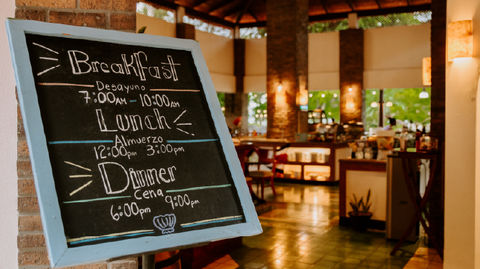 Breakfast
Desayuno
7:00AM - 10:00AM
Lunch
Almuerzo
12:00PM 3:00PM
Dinner
Cena
6:00PM 9:00PM